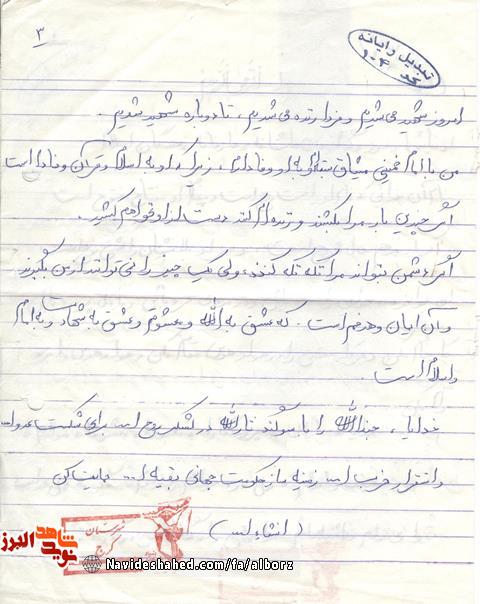 ۳
تبدیل رایانه
کد ۱۰۴
امروز شهید می‌شدیم و فردا زنده می‌شدیم، تا دوباره شهید شدیم.
من با امام خمینی میثاق بسته‌ام و به او وفادارم، زیرا که او به اسلام و قرآن وفادار است
اگر چندین بار مرا بکشند و زنده‌ام کنند دست از او نخواهم کشید.
اگر دشمن بتواند مرا تکه تکه کند، ولی یک چیز را نمی‌تواند از من بگیرند
و آن ایمان و هدفم است. که عشق به الله و معشوقم و عشق به شهادت و به امام
و اسلام است.
خدایا، حزب‌الله را با سوگند ثارالله در لشکر روح ا... برای شکست عدوا...
و استقرار حزب ا... زمینه ساز حکومت جهانی بقیه ا... حمایت کن
(انشاءا...)
شهرستان
کرج
نوید شاهد البرز
Navideshahed.com/fa/alborz